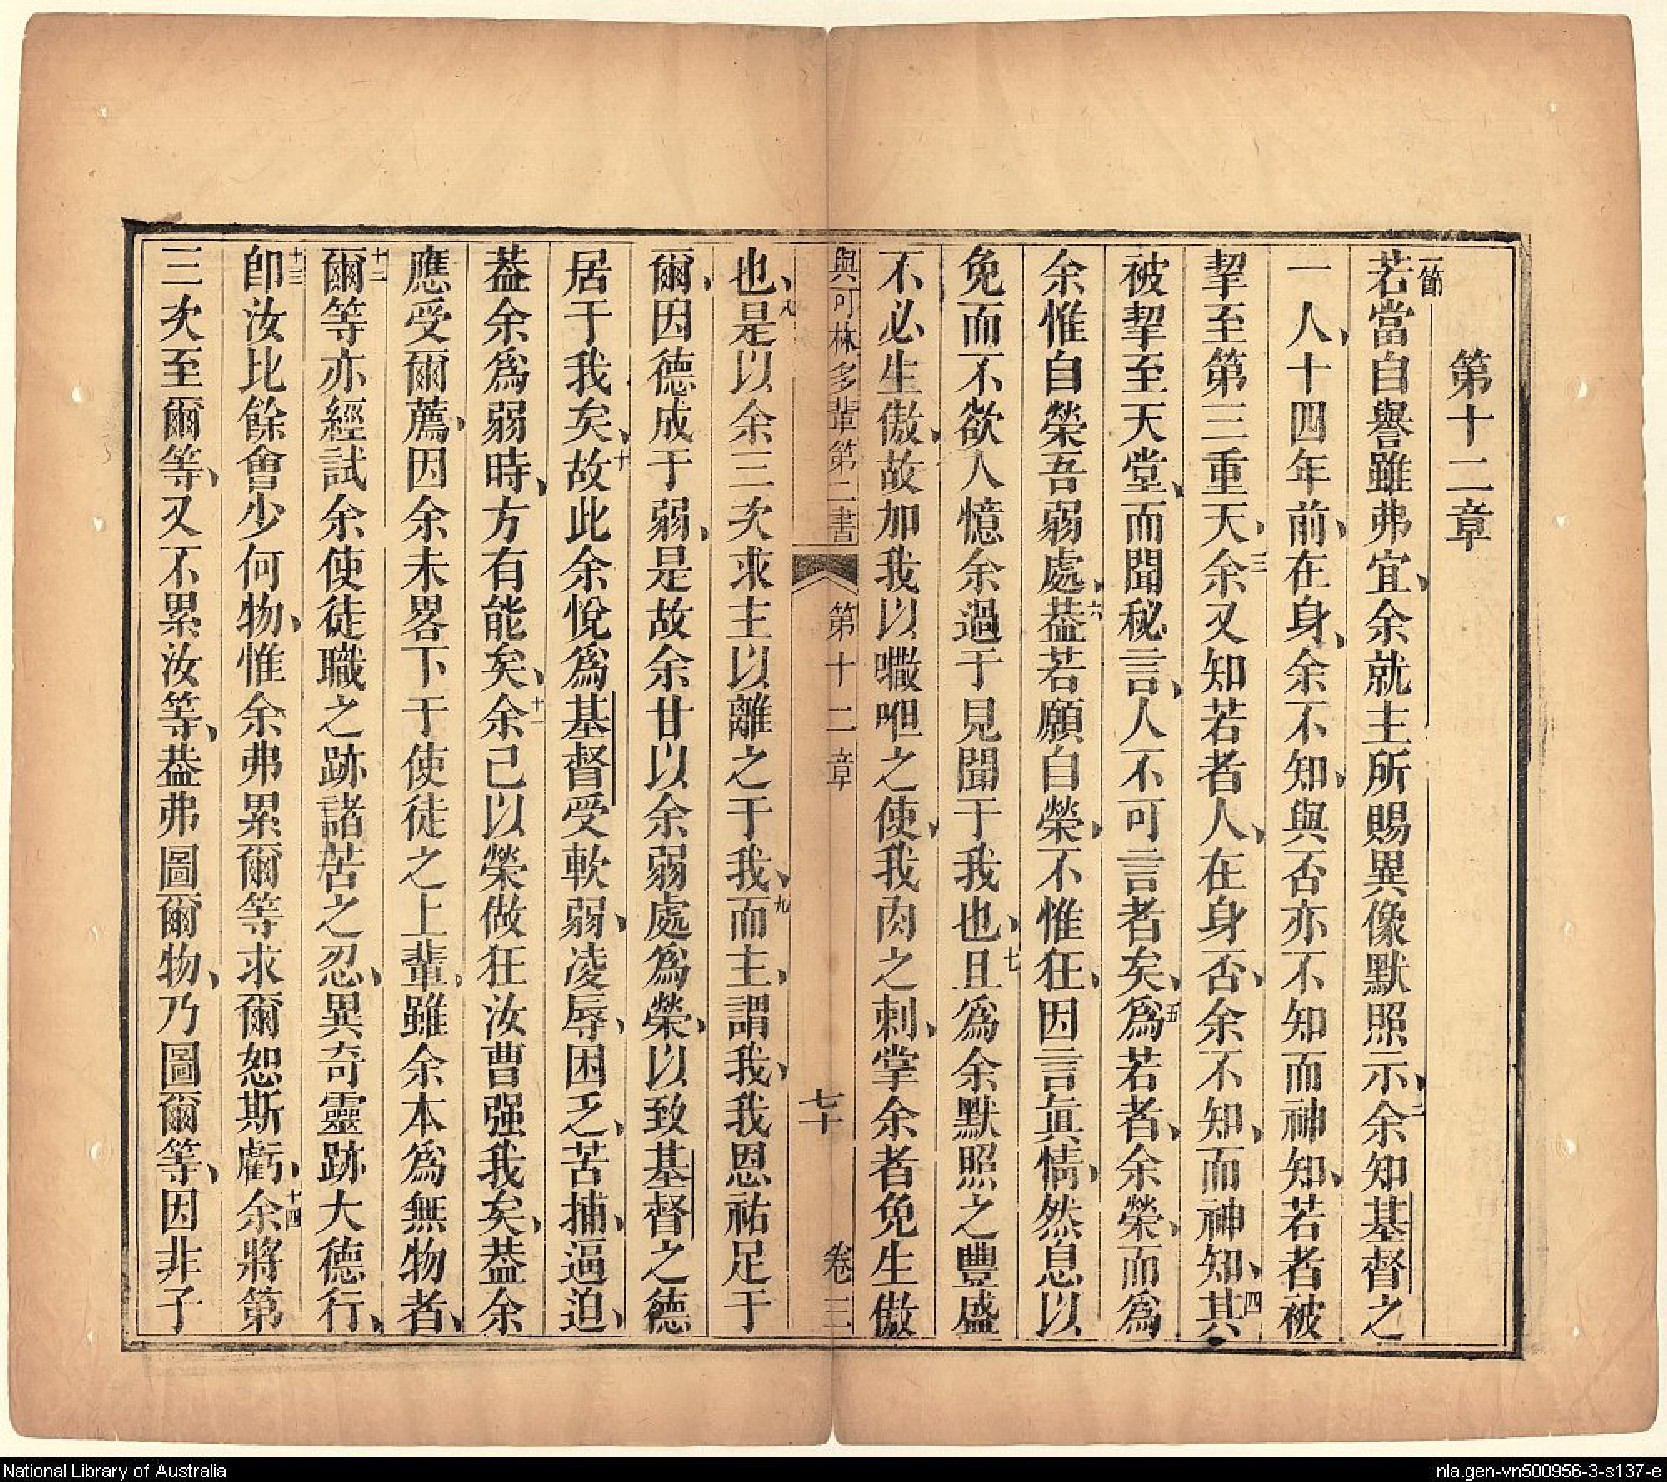 第十二章
一節若當自譽雖弗宜、余就主所賜異像默照示、二余知基督之
一人、十四年前、在身、余不知、與否亦不知而神知、若者被
挈至第三重天、三余又知若者人、在身否、余不知、而神知、四其
被挈至天堂、而聞秘言、人不可言者矣、五爲若者、余榮、而爲
余惟自榮吾弱處、六葢若願自榮、不惟狂、因言眞情、然息以
免而不欲人憶余過于見聞于我也、七且爲余默照之豐盛
不必生傲、故加我以㘔呾之使、我肉之刺、掌余者免生傲
也、八是以余三次求主以離之于我、九而主、謂我、我恩祐足于
爾、因德成于弱、是故余甘以余弱處爲榮、以致基督之德
居于我矣、十故此余悅爲基督受軟弱、凌辱、困乏、苦捕、逼迫、
葢余爲弱時、方有能矣、十一余己以榮做狂汝曹强我矣、葢余
應受爾薦、因余未畧下于使徒之上輩。雖余本爲無物者、
十二爾等亦經試余使徒職之跡諸苦之忍、異奇靈跡大德行、
十三卽汝比餘會少何物、惟余弗累爾等求爾恕斯虧、十四余將第
三次至爾等、又不累汝等、葢弗圖爾物、乃圖爾等、因非子
與可林多輩第二書 第十二章 七十 卷三
National Library of Australia
nla.gen-vn500956-3-s137-e